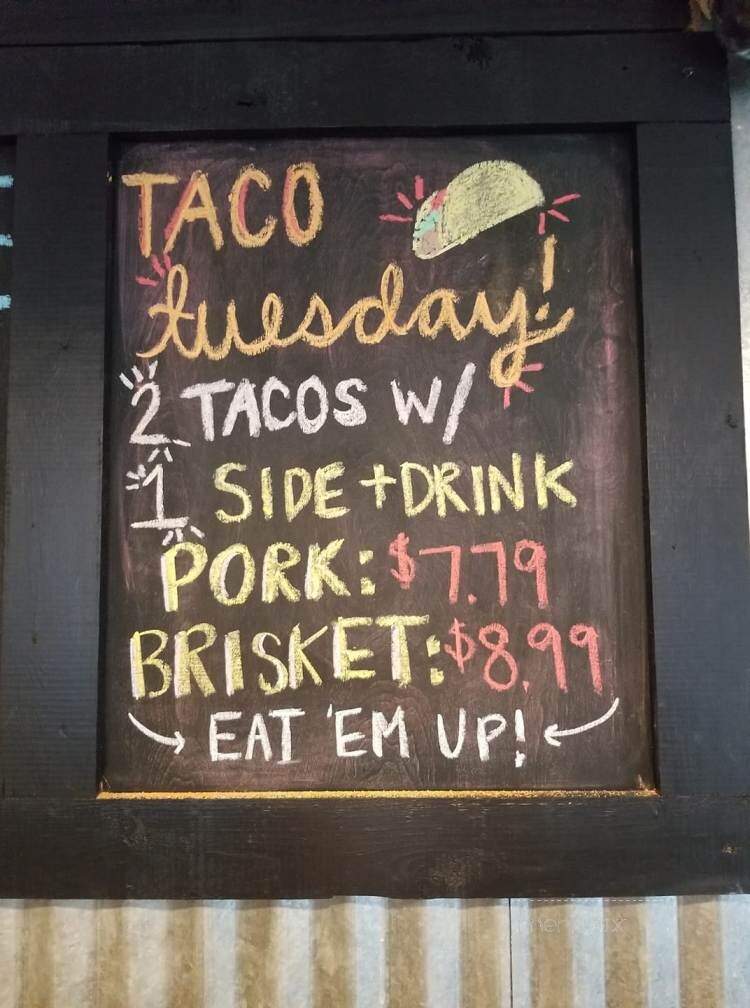 TACO
tuesday!
2 TACOS W/
1 SIDE + DRINK
PORK: $7.79
BRISKET: $8.99
EAT 'EM UP!